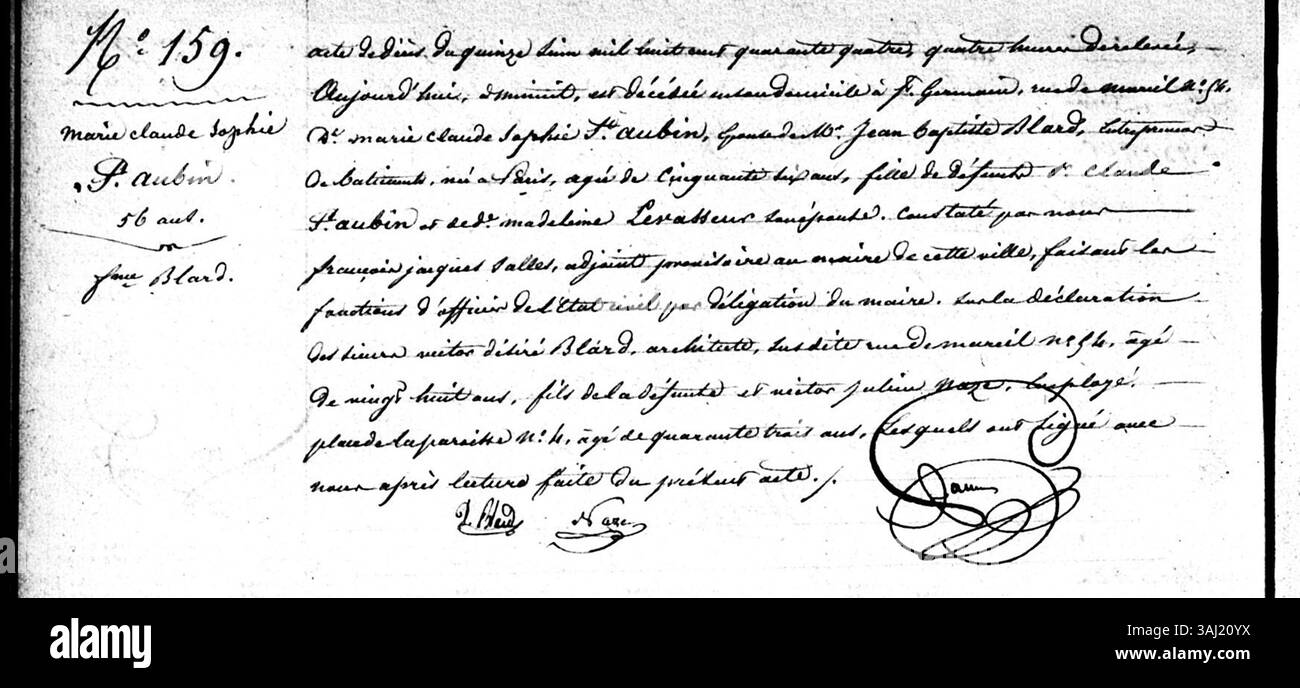 N° 159.
marie claude Sophie
St. aubin.
56 ans.
fme Blard.
acte de décès du quinze Juin mil huit cent quarante quatre, quatre heures de relevée,
Aujourd'hui, à minuit, est décédée en son domicile à St. Germain, rue de mareil n° 54.
De. marie claude Sophie St. aubin, épouse de Mr. Jean Baptiste Blard, Entrepreneur
de batiments, née à Paris, agée de Cinquante six ans, fille de défunts Sr. Claude
St. aubin et de de. madeleine Levasseur son épouse. Constaté par nous
françois jacques Salles, adjoint provisoire au maire de cette ville, faisant les
fonctions d'officier de l'Etat civil par délégation du maire. sur la déclaration
des sieurs victor désiré Blard, architecte, susdite rue de mareil n° 54, âgé
de vingt huit ans, fils de la défunte et victor julien Naze, Employé,
place de la paroisse n° 4, âgé de quarante trois ans, Lesquels ont signé avec
nous après lecture faite du présent acte ./.
Blard Naze
alamy
Image ID: 3AJ20YX
www.alamy.com